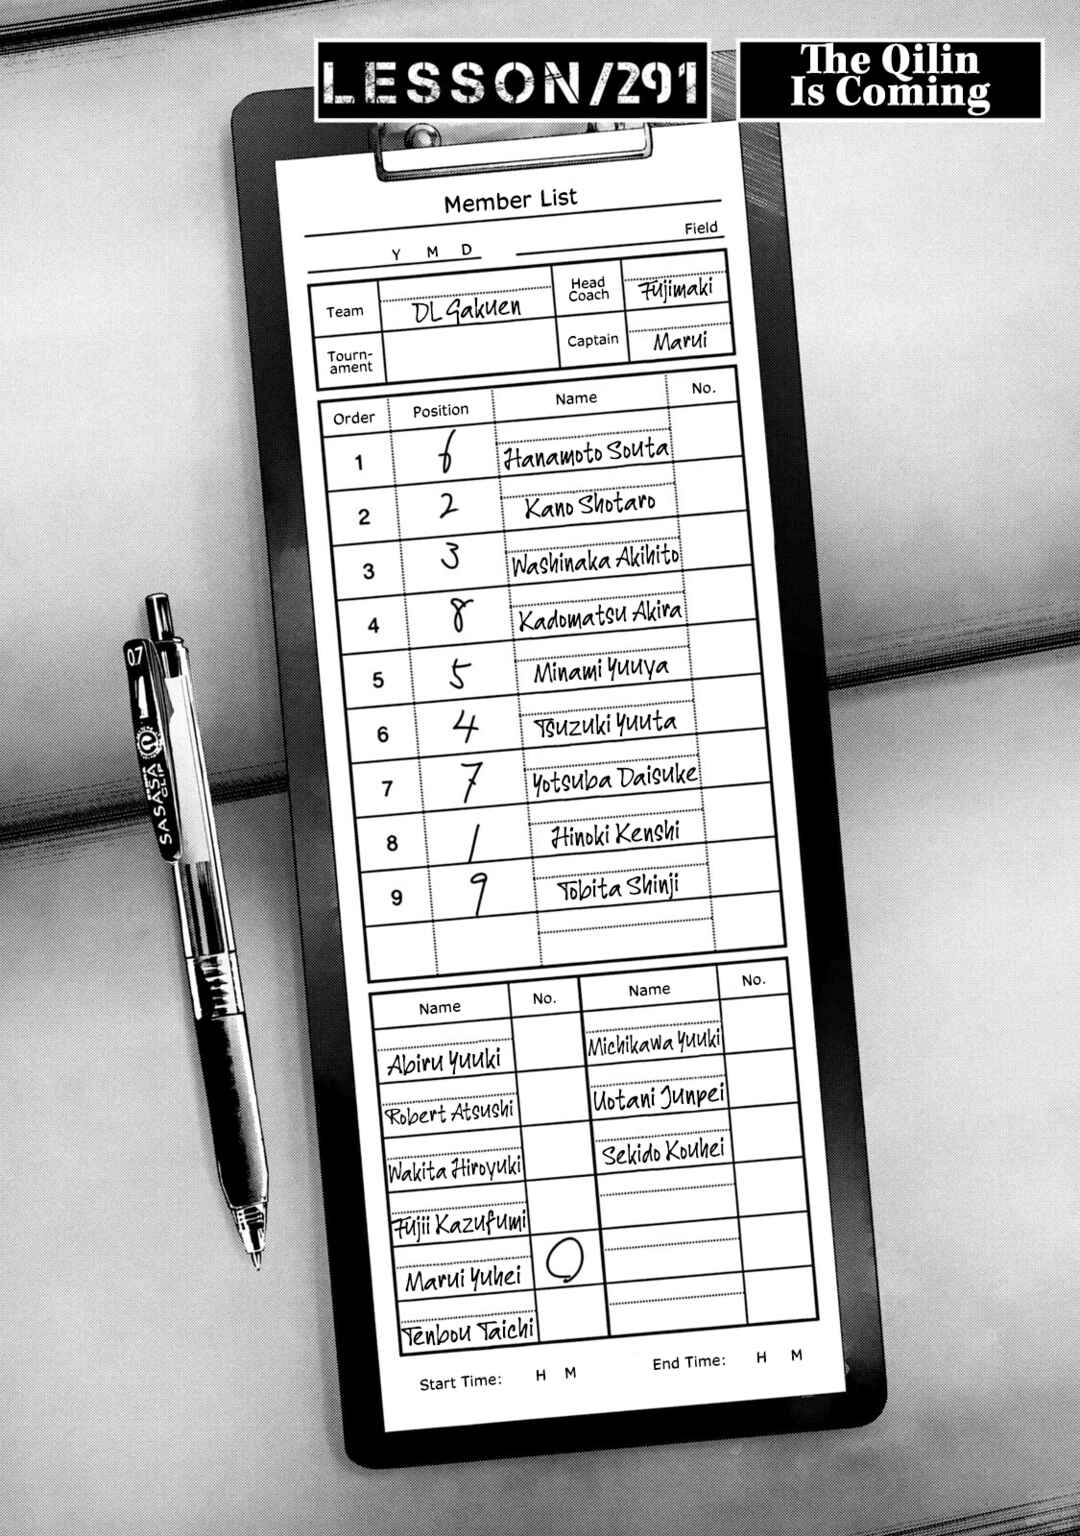 LESSON/291
The Qilin
Is Coming
Member List
Y M D
Field
Team
DL Gakuen
Head
Coach
Fujimaki
Tourn-
ament
Captain
Marui
Order Position Name No.
1 6 Hanamoto Souta
2 2 Kano Shotaro
3 3 Washinaka Akihito
4 8 Kadomatsu Akira
5 5 Minami Yuuya
6 4 Tsuzuki Yuuta
7 7 Yotsuba Daisuke
8 1 Hinoki Kenshi
9 9 Tobita Shinji
Name No. Name No.
Abiru Yuuki Michikawa Yuuki
Robert Atsushi Uotani Junpei
Wakita Hiroyuki Sekido Kouhei
Fujii Kazufumi
Marui Yuhei O
Tenbou Taichi
Start Time: H M End Time: H M
0.7
SASASA
CLIP